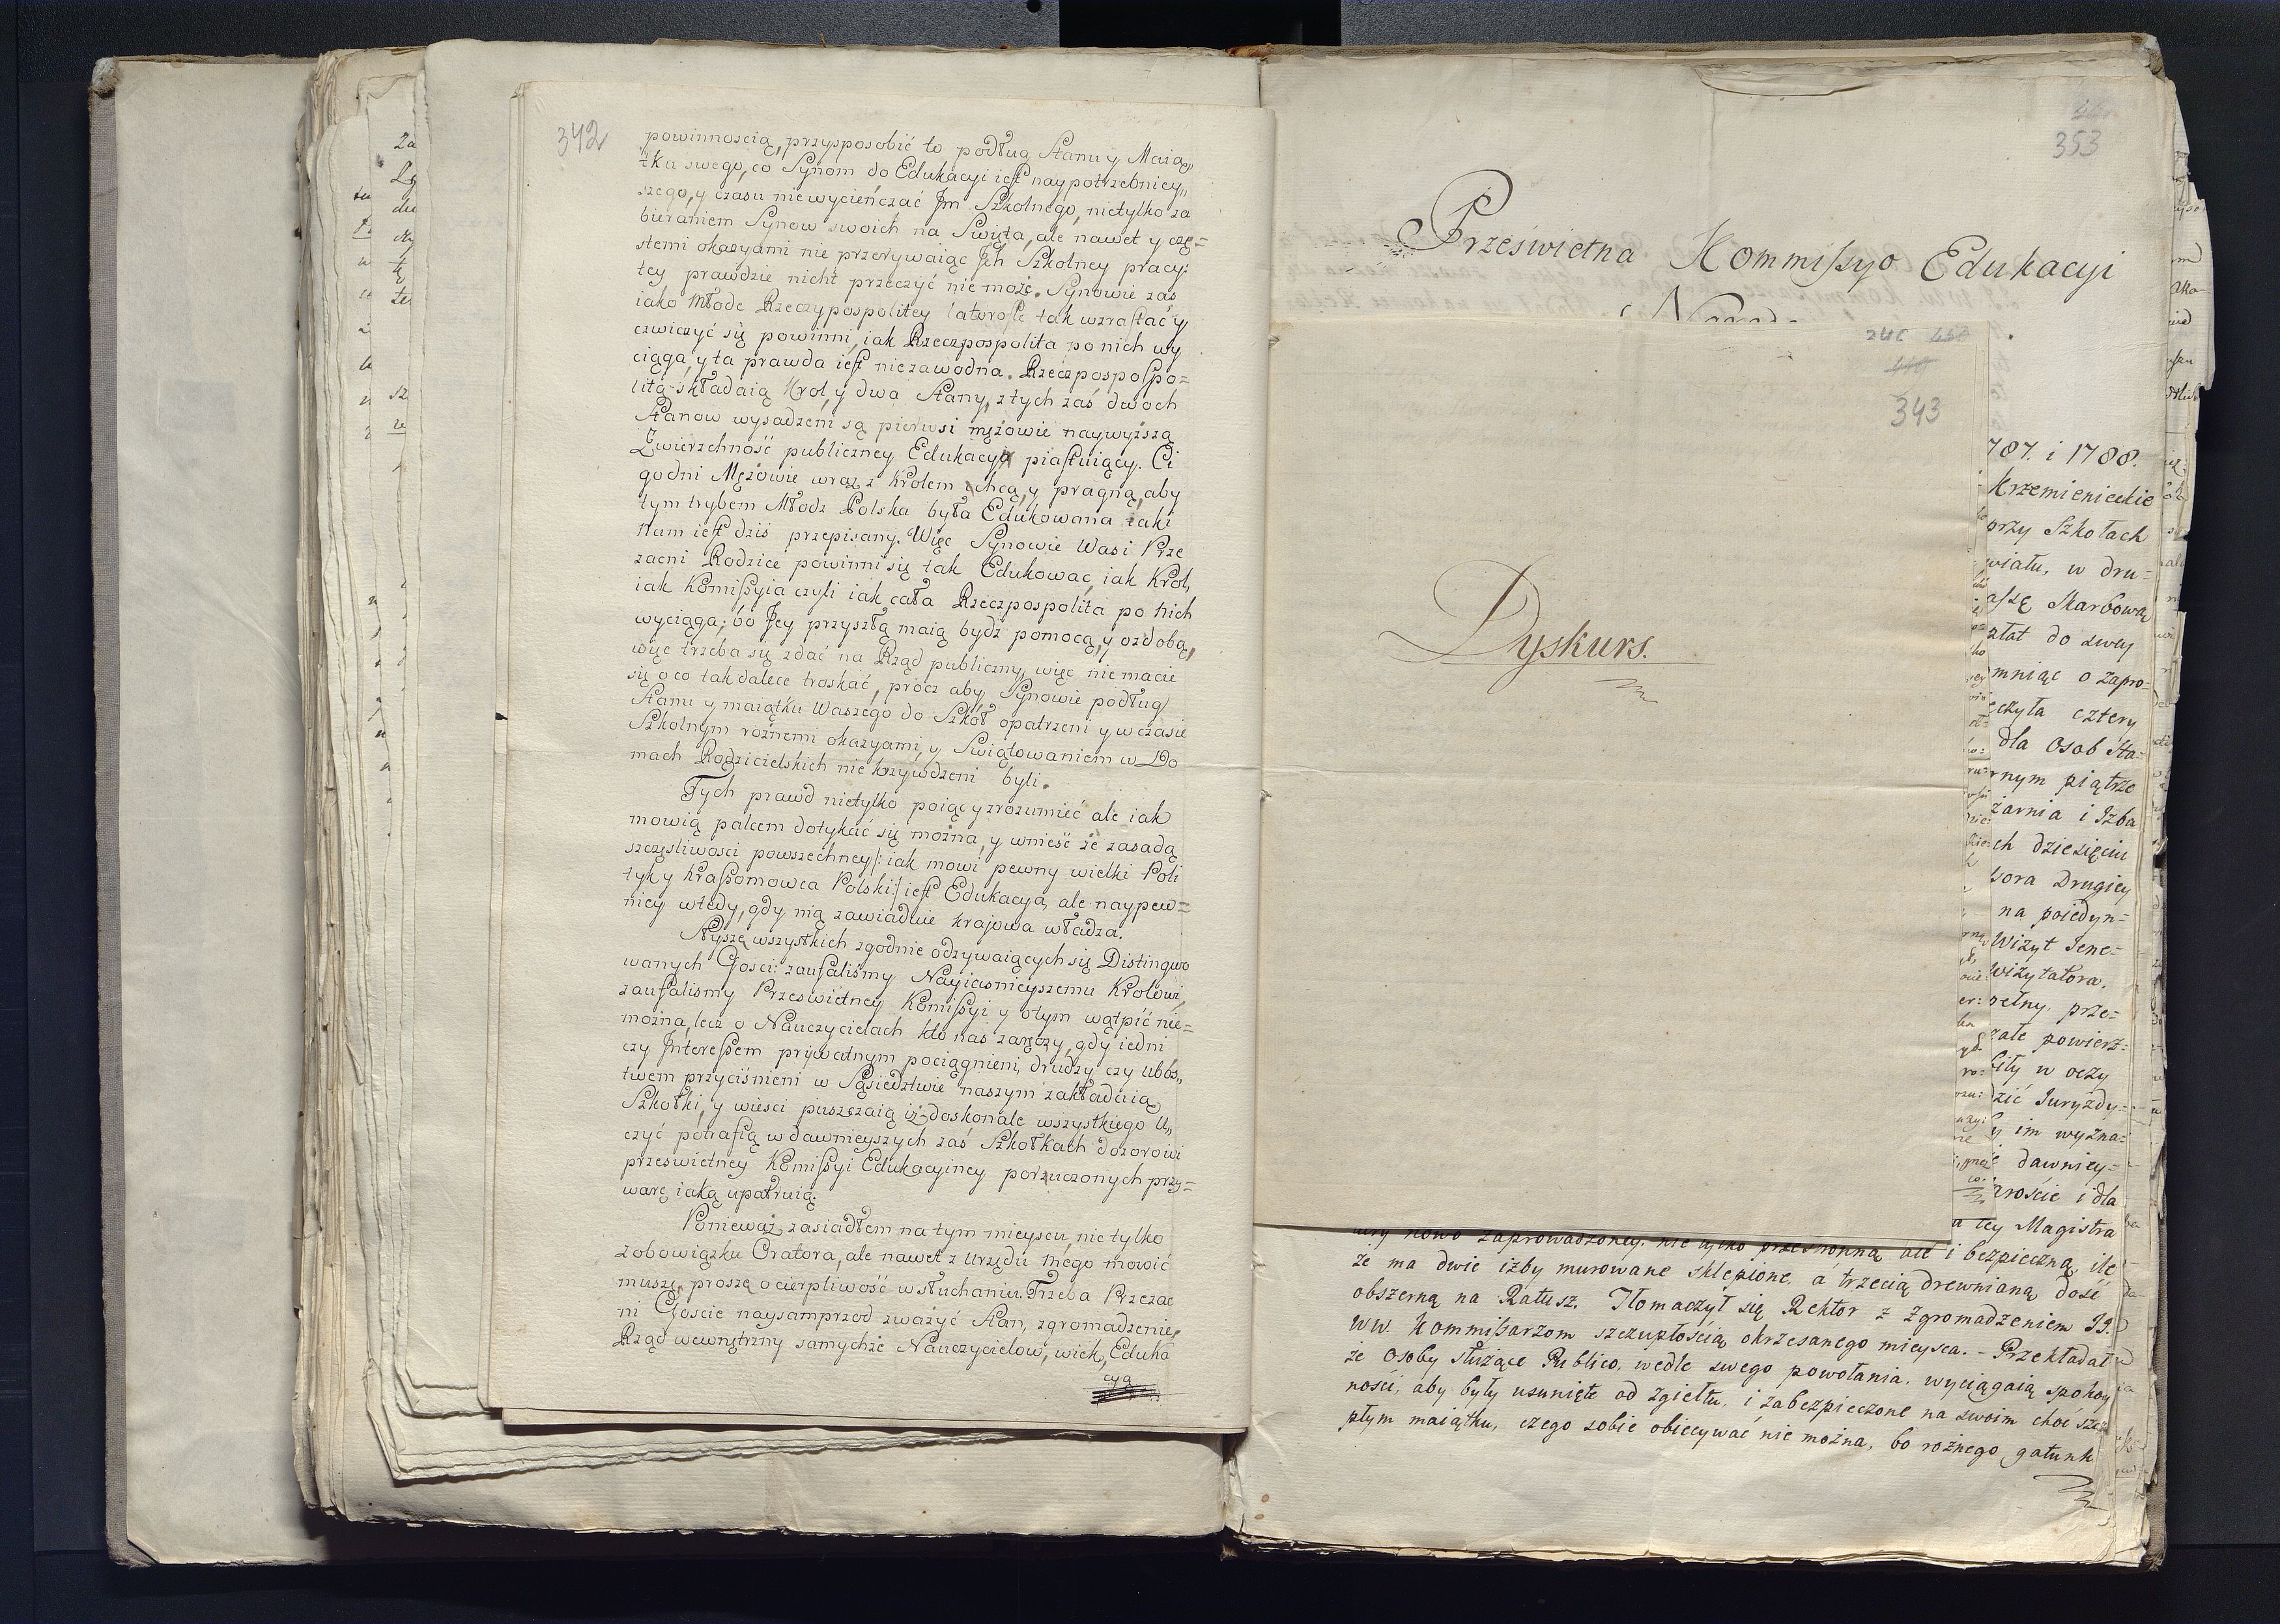 342
powinnoscią, przysposobić to podług Stanu y Maią„
tku swego, co Synom do Edukacyi iest naypotrzebniey„
szego, y czasu niewycieńczać Jm Szkolnego, nietylko za
bieraniem Synow swoich na Swięta, ale nawet y czę=
stemi okazyami nie przerywaiąc Jch Szkolney pracy:
tey prawdzie nicht przeczyć nie może. Synowie zas
iako młode Rzeczypospolitey latorosle tak wzrastać y
cwiczyć się powinni, iak Rzeczpospolita po nich wy
ciąga, y ta prawda iest niezawodna. Rzeczpospospo=
litą składaią Krol, y dwa Stany, z tych zaś dwoch
Stanow wysadzeni są pierwsi mężowie naywyższą
Zwierzchność publiczney Edukacyi piastuiący. Ci
godni Mężowie wraz z Krolem chcą, y pragną, aby
tym trybem Młodz Polska była Edukowana iaki
Nam iest dziś przepisany. Więc Synowie Wasi Prze
zacni Rodzice powinni się tak Edukować, iak Krol,
iak Komissyia czyli iak cała Rzeczpospolita po nich
wyciąga; bo Jey przyszłą maią bydź pomocą, y ozdobą,
więc trzeba się zdać na Rząd publiczny, więc nie macie
się o co tak dalece troskać, procz aby Synowie podług
Stanu y maiątku Waszego do Szkoł opatrzeni y w czasie
Szkolnym roźnemi okazyami, y Swiątowaniem w Do
mach Rodzicielskich nie krzywdzeni byli.
Tych prawd nietylko poiąć y zrozumieć ale iak
mowią palcem dotykać się można, y wnieść że zasadą
szczęsliwosci powszechney /: iak mowi pewny wielki Poli
tyk y Krasomowca Polski :/ iest Edukacya, ale naypew=
niey wtedy, gdy nią zawiaduie kraiowa władza.
Słyszę wszystkich zgodnie odzywaiących się Distingwo
wanych Gosci: zaufaliśmy Nayiasnieyszemu Krolowi,
zaufalismy Przeswietney Komissyi y o tym wątpić nie=
można, lecz o Nauczycielach kto nas zaręczy, gdy iedni
czy Interessem prywatnym pociągnieni, drudzy czy ubos„
twem przyciśnieni w Sąsiedztwie naszym zakładaią
Szkołki, y wiesci puszczaią iż doskonale wszystkiego u„
czyć potrafią w dawnieyszych zaś Szkołkach dozorowi
przeswietney Komissyi Edukacyiney poruczonych przy=
warę iaką upatruią.
Ponieważ zasiadłem na tym mieyscu nie tylko
z obowiązku Oratora, ale nawet z Urzędu mego mowić
muszę, proszę o cierpliwość w słuchaniu. Trzeba Przezac
ni Goscie naysamprzod zważyć Stan, zgromadzenie,
Rząd wewnętrzny samychże Nauczycielow, wiek, Eduka
cyą
353
Prześwietna Kommissyo Edukacyi
246
343
Dyskurs.
787. i 1788.
Krzemienieckie
przy Szkołach
wiatu, w dru=
assę Skarbową
ztat do swey
mniąc o zapro=
eczyła cztery
dla Osob Sta=
rnym piątrze
żarnia i Izba
ch dziesięciu
sora Drugiey
na poiedyn=
Wizyt Jene=
Wizytatora,
pełny, prze=
załe powierz=
ity w oczy
dzić Juryzdy=
y im wyzna=
dawniey=
rościе i dla
a tey Magistra
tury nowo zaprowadzoney, nie tylko przestronną ale i bezpieczną, ile
że ma dwie izby murowane sklepione, a trzecią drewnianą dość
obszerną na Ratusz. Tłomaczył się Rektor z Zgromadzeniem JJ.
WW. Kommissarzom szczupłością okrzesanego mieysca. - Przekładał
że osoby służące Publico, wedle swego powołania, wyciągaią spokoy
ności, aby były usunięte od zgiełku, i zabezpieczone na swoim choć szczu
płym maiątku, czego sobie obiecywać nie można, bo rożnego gatunk